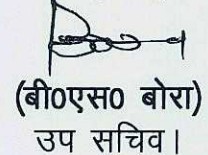 (बी0एस0 बोरा)
उप सचिव।